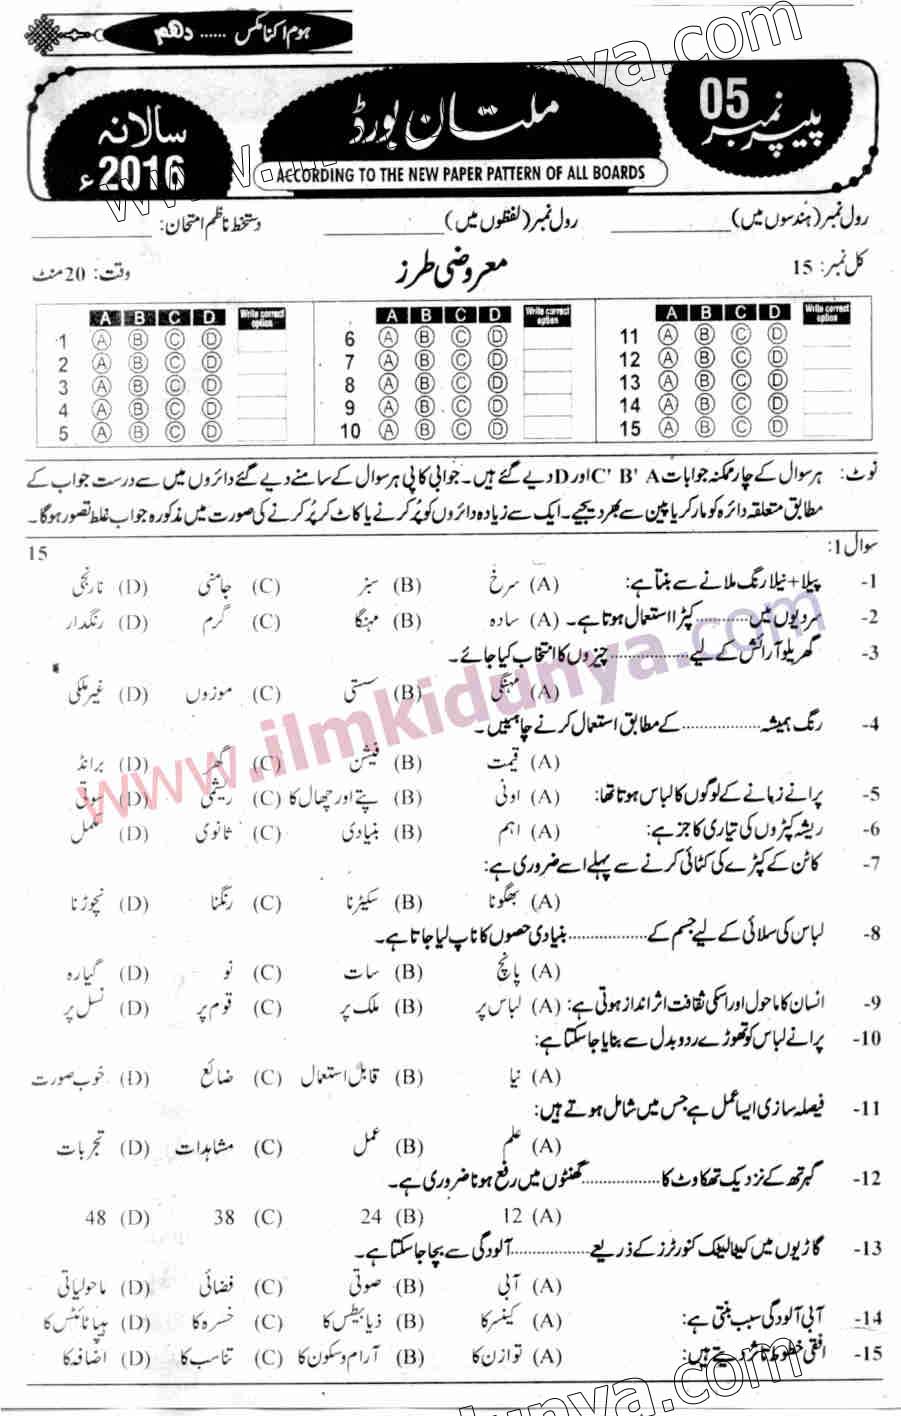 ہوم اکنامکس ...... دھم
پیپر نمبر 05
ملتان بورڈ
سالانہ 2016ء
ACCORDING TO THE NEW PAPER PATTERN OF ALL BOARDS
رول نمبر (ہندسوں میں) ________ رول نمبر (لفظوں میں) ________ دستخط ناظم امتحان: ________
کل نمبر: 15 معروضی طرز وقت: 20 منٹ
A B C D Write correct option A B C D Write correct option A B C D Write correct option
1 A B C D 6 A B C D 11 A B C D
2 A B C D 7 A B C D 12 A B C D
3 A B C D 8 A B C D 13 A B C D
4 A B C D 9 A B C D 14 A B C D
5 A B C D 10 A B C D 15 A B C D
نوٹ: ہر سوال کے چار ممکنہ جوابات A 'B 'C اور D دیے گئے ہیں۔ جوابی کاپی ہر سوال کے سامنے دیے گئے دائروں میں سے درست جواب کے
مطابق متعلقہ دائرہ کو مارکر یا پین سے بھر دیجیے۔ ایک سے زیادہ دائروں کو پُر کرنے یا کاٹ کر پُر کرنے کی صورت میں مذکورہ جواب غلط تصور ہوگا۔
سوال 1: 15
1- پیلا + نیلا رنگ ملانے سے بنتا ہے: (A) سرخ (B) سبز (C) جامنی (D) نارنجی
2- سردیوں میں ............ کپڑا استعمال ہوتا ہے۔ (A) سادہ (B) مہنگا (C) گرم (D) رنگدار
3- گھریلو آرائش کے لیے ................ چیزوں کا انتخاب کیا جائے۔
(A) مہنگی (B) سستی (C) موزوں (D) غیر ملکی
4- رنگ ہمیشہ ................ کے مطابق استعمال کرنے چاہئیں۔
(A) قیمت (B) فیشن (C) گھر (D) برانڈ
5- پرانے زمانے کے لوگوں کا لباس ہوتا تھا: (A) اونی (B) پتے اور چھال کا (C) ریشمی (D) سوتی
6- ریشہ کپڑوں کی تیاری کا جز ہے: (A) اہم (B) بنیادی (C) ثانوی (D) مکمل
7- کاٹن کے کپڑے کی کٹائی کرنے سے پہلے اسے ضروری ہے:
(A) بھگونا (B) سکیڑنا (C) رنگنا (D) نچوڑنا
8- لباس کی سلائی کے لیے جسم کے ................ بنیادی حصوں کا ناپ لیا جاتا ہے۔
(A) پانچ (B) سات (C) نو (D) گیارہ
9- انسان کا ماحول اور اسکی ثقافت اثر انداز ہوتی ہے: (A) لباس پر (B) ملک پر (C) قوم پر (D) نسل پر
10- پرانے لباس کو تھوڑے ردوبدل سے بنایا جا سکتا ہے:
(A) نیا (B) قابل استعمال (C) ضائع (D) خوب صورت
11- فیصلہ سازی ایسا عمل ہے جس میں شامل ہوتے ہیں:
(A) علم (B) عمل (C) مشاہدات (D) تجربات
12- گبرتھ کے نزدیک تھکاوٹ کا ................ گھنٹوں میں رفع ہونا ضروری ہے۔
(A) 12 (B) 24 (C) 38 (D) 48
13- گاڑیوں میں کیٹالیٹک کنورٹرز کے ذریعے ................ آلودگی سے بچا جا سکتا ہے۔
(A) آبی (B) صوتی (C) فضائی (D) ماحولیاتی
14- آبی آلودگی سبب بنتی ہے: (A) کینسر کا (B) ذیابیطس کا (C) خسرہ کا (D) ہیپاٹائٹس کا
15- افقی خطوط تاثر دیتے ہیں: (A) توازن کا (B) آرام و سکون کا (C) تناسب کا (D) اضافہ کا
www.ilmkidunya.com